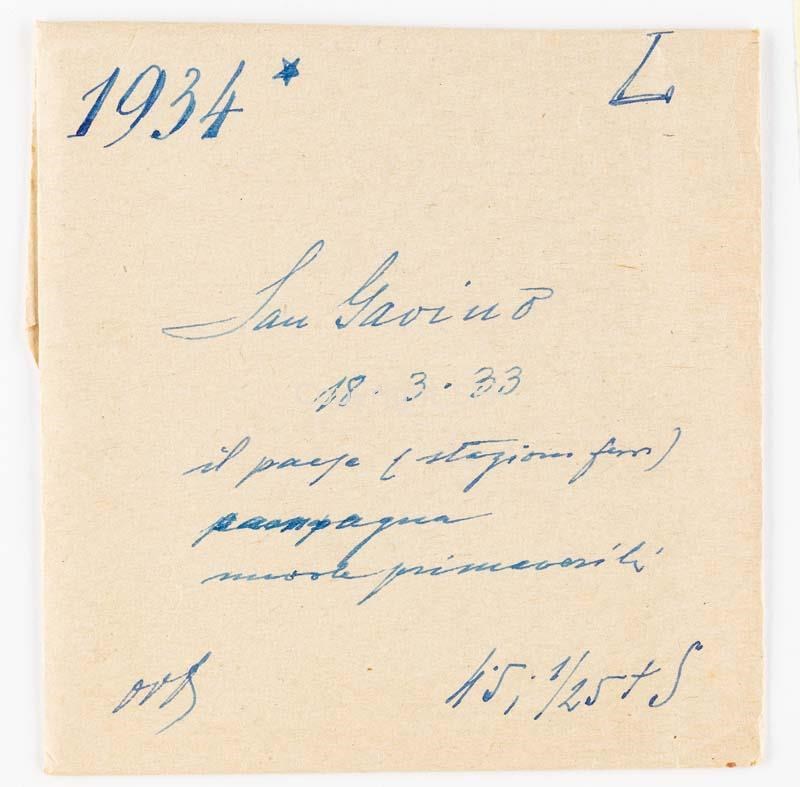 1934* L
San Gavino
18.3.33
il paese (stazione ferr)
campagna
nuvole primaverili
4.5; 1/25 + S